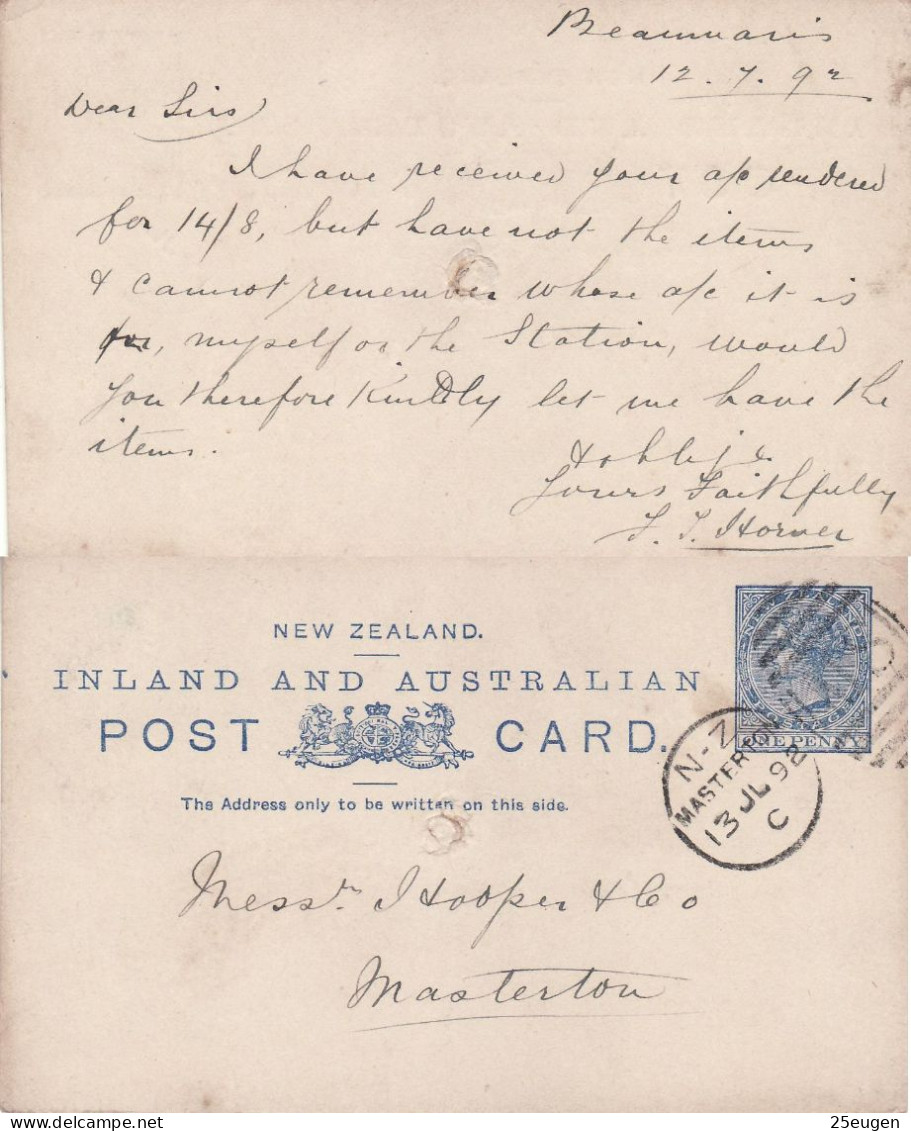 Beaumaris
12.7.92
Dear Sirs
I have received your a/c rendered
for 14/8, but have not the items
& cannot remember whose a/c it is
for, myself or the Station, would
you therefore kindly let me have the
items.
& oblige
Yours Faithfully
Horner
NEW ZEALAND.
INLAND AND AUSTRALIAN
POST CARD.
The Address only to be written on this side.
NEW ZEALAND
POSTAGE
ONE PENNY
N-Z
MASTERTON
13 JL 92
C
Messrs Hooper & Co
Masterton
25eugen